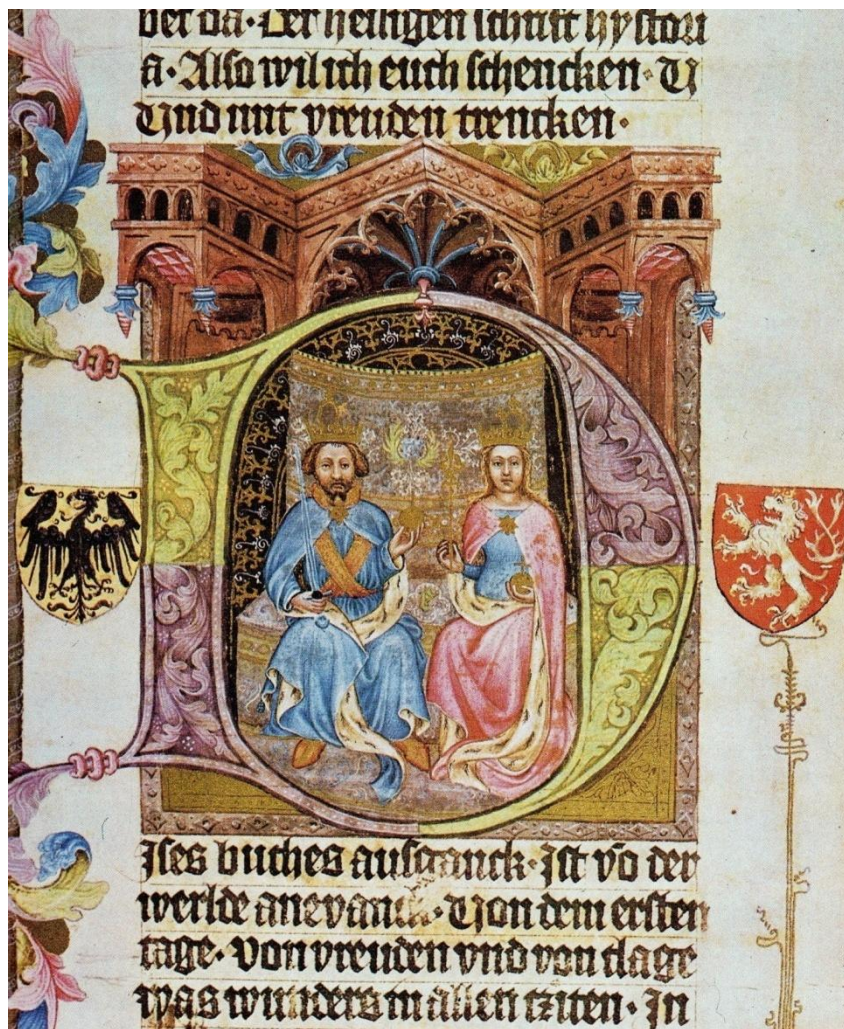 ber da · Der heiligen schrift hystori
a · Also wil ich euch schencken · U
Vnd mit vreuden trencken ·
D
Ises buches ausganck · Ist võ der
werlde anevanck · Von dem ersten
tage · von vreuden vnd von clage
was wunders in allen tziten · In